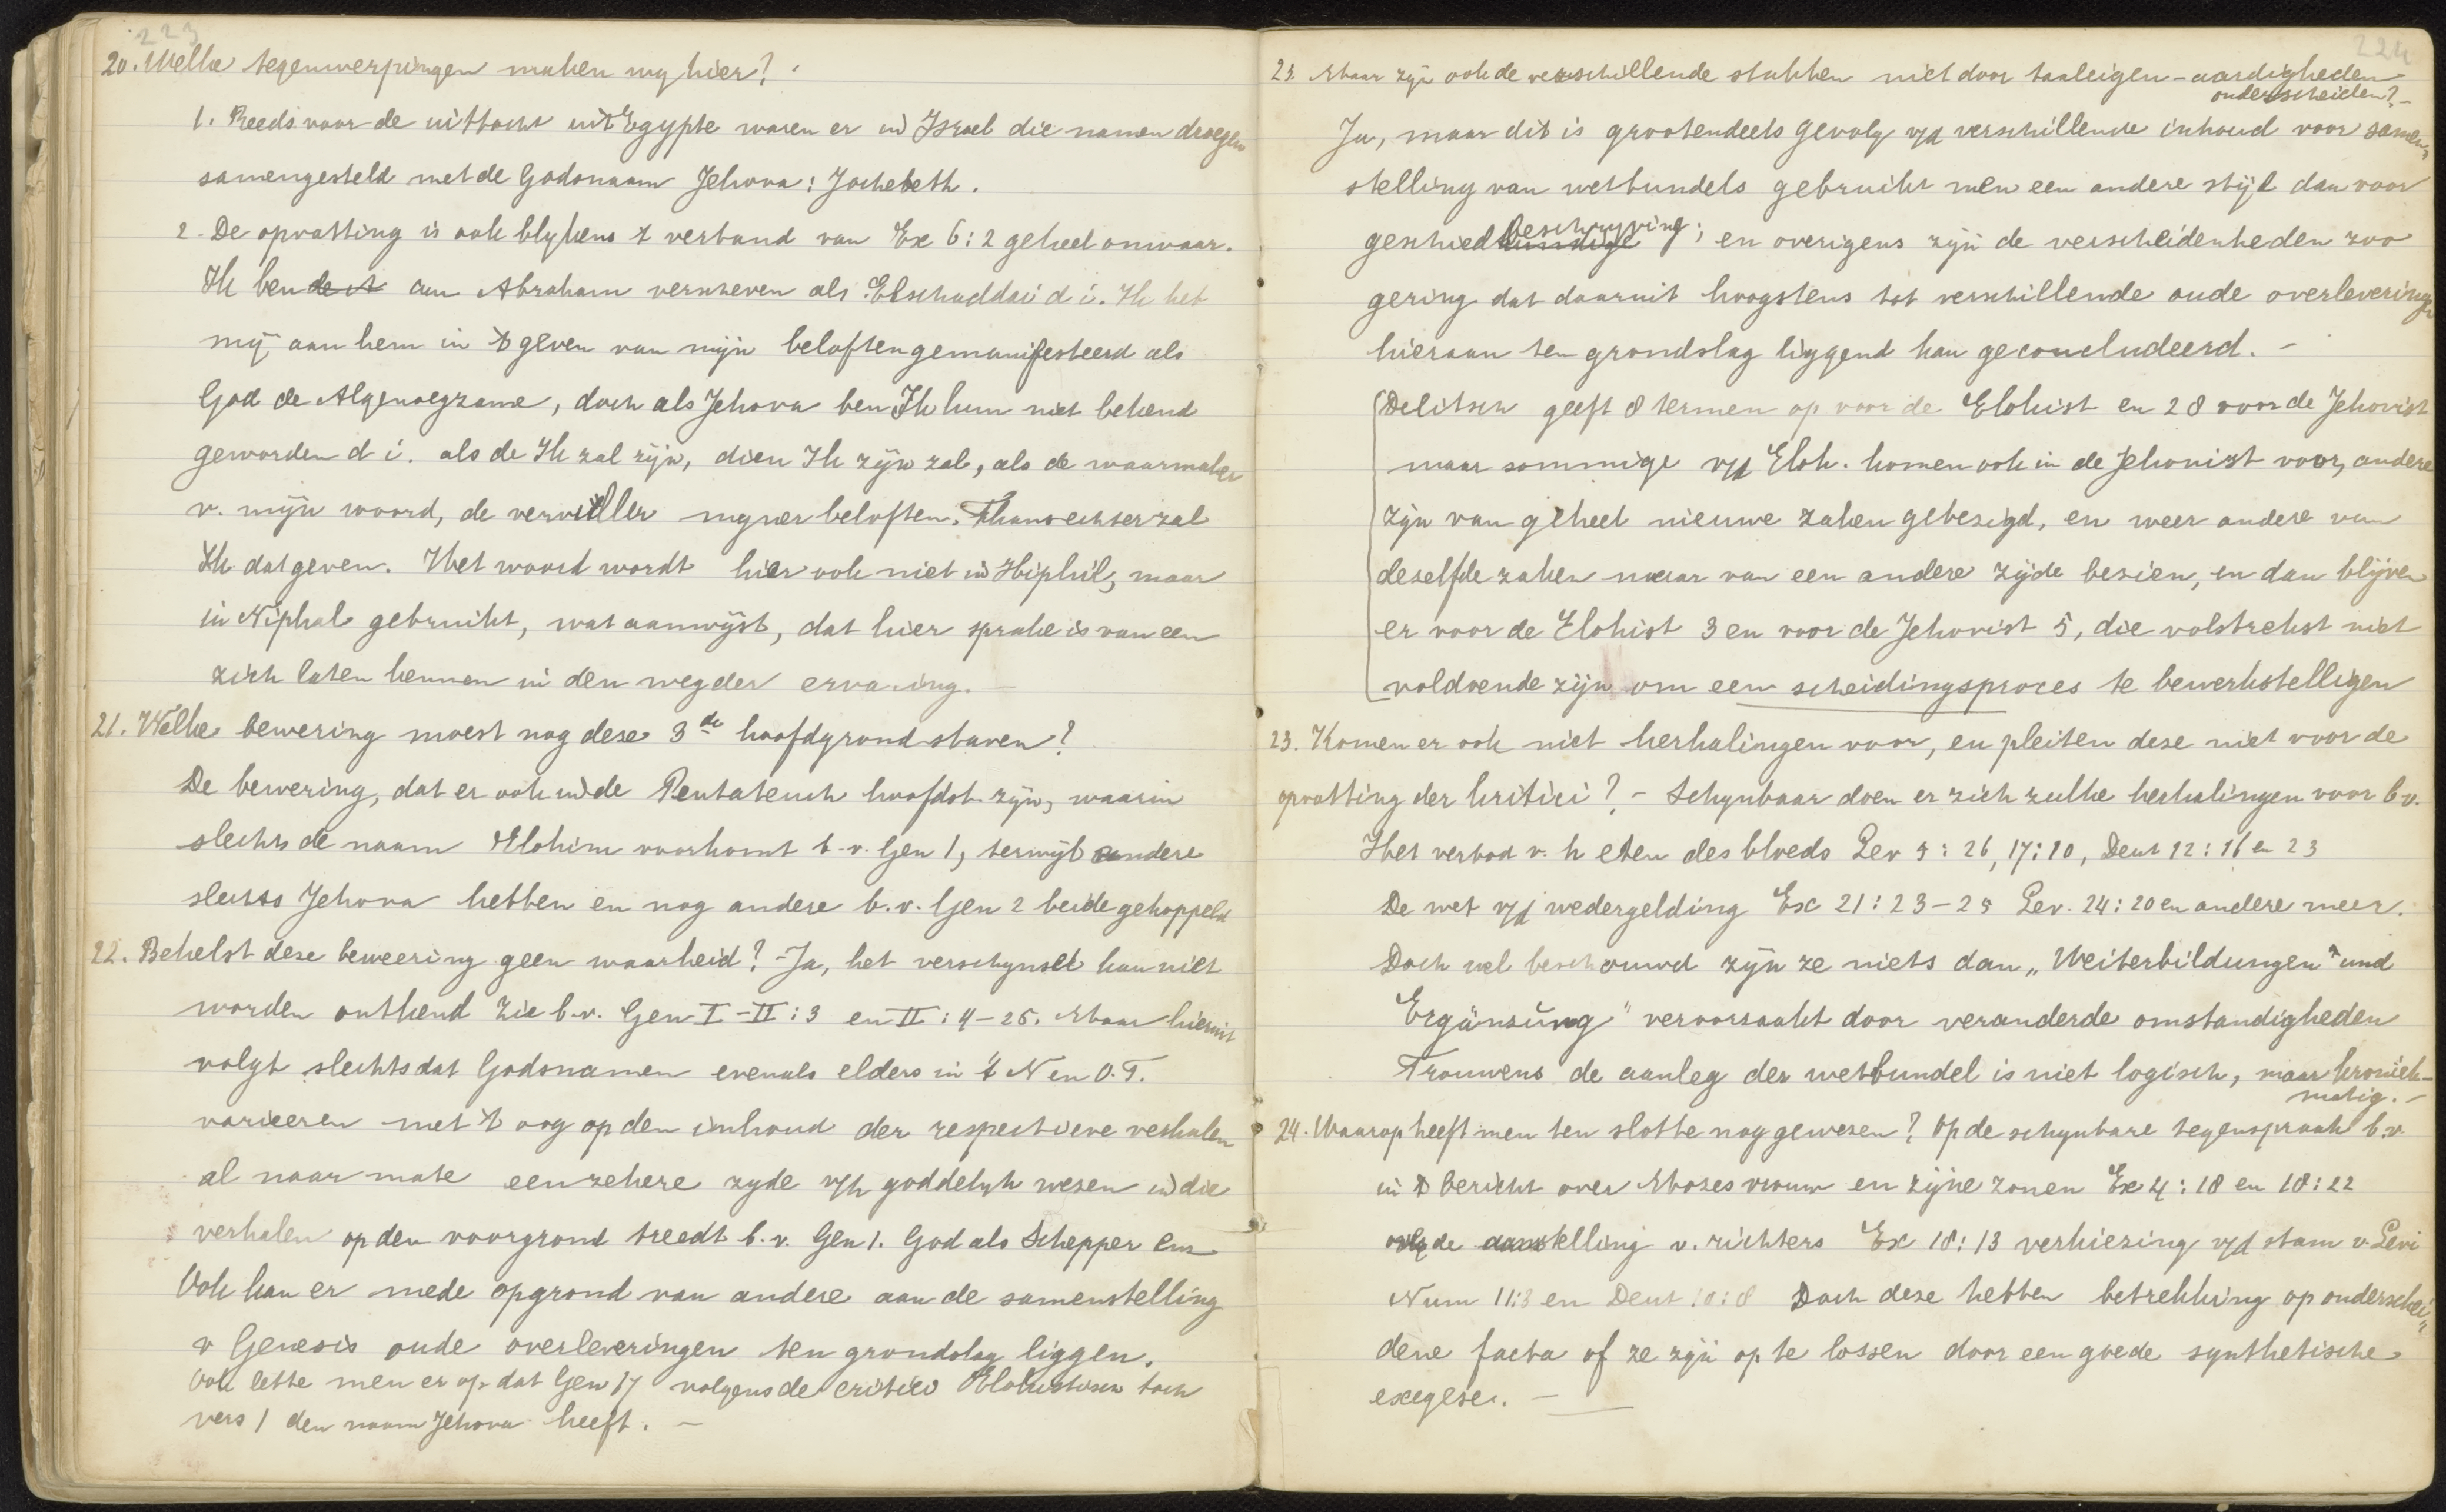 223
20. Welke tegenwerpingen maken wy hier?
1. Reeds voor de uittocht uit Egypte waren er in Israel die namen droegen
samengesteld met de Godsnaam Jehova: Jochebeth.
2. De opvatting is ook blykens 't verband van Ex 6:2 geheel onwaar.
Ik ben aan Abraham verschenen als Elschaddai d i. Ik heb
mij aan hem in 't geven van mijn beloften gemanifesteerd als
God de Algenoegzame, doch als Jehova ben Ik hun niet bekend
geworden d i. als de Ik zal zijn, dien Ik zijn zal, als de waarmaker
v. mijn woord, de vervuller myner beloften. Thans echter zal
Ik dat geven. Het woord wordt hier ook niet in Hiphil, maar
in Niphal gebruikt, wat aanwijst, dat hier sprake is van een
zich laten kennen in den weg der ervaring. —
21. Welke bewering moest nog deze 3de hoofdgrond staven?
De bewering, dat er ook in de Pentateuch hoofdst. zijn, waarin
slechts de naam Elohim voorkomt b.v. Gen 1, terwijl andere
slechts Jehova hebben en nog andere b.v. Gen 2 beide gekoppeld
22. Behelst deze beweering geen waarheid? - Ja, het verschynsel kan niet
worden ontkend zie b.v. Gen I - II:3 en II:4-25. Maar hieruit
volgt slechts dat Godsnamen evenals elders in 't N en O.T.
varieeren met 't oog op den inhoud der respectieve verhalen
al naar mate een zekere zyde v/h goddelyk wezen in die
verhalen op den voorgrond treedt b.v. Gen 1. God als Schepper enz
Ook kan er mede op grond van andere aan de samenstelling
v Genesis oude overleveringen ten grondslag liggen.
Ook lette men er op dat Gen 17 volgens de critici Elohistisch toch
vers 1 den naam Jehova heeft. —
224
23. Maar zijn ook de verschillende stukken niet door taaleigen-aardigheden
onderscheiden? -
Ja, maar dit is grootendeels gevolg v/d verschillende inhoud voor samen-
stelling van wetbundels gebruikt men een andere stijl dan voor
geschiedkundige beschryving; en overigens zijn de verscheidenheden zoo
gering dat daaruit hoogstens tot verschillende oude overleveringen
hieraan ten grondslag liggend kan geconcludeerd. -
Delitsch geeft 8 termen op voor de Elohist en 28 voor de Jehovist
maar sommige v/d Eloh. komen ook in de Jehovist voor, andere
zijn van geheel nieuwe zaken gebezigd, en weer andere van
deselfde zaken maar van een andere zijde bezien, en dan blijven
er voor de Elohist 3 en voor de Jehovist 5, die volstrekst niet
voldoende zijn om een scheidingsproces te bewerkstelligen
23. Komen er ook niet herhalingen voor, en pleiten deze niet voor de
opvatting der kritici? - Schynbaar doen er zich zulke herhalingen voor b.v.
Het verbod v. h eten des bloeds Lev 3:26, 17:10, Deut 12:16 en 23
De wet v/d wedergelding Ex 21:23-25 Lev. 24:20 en andere meer.
Doch wel beschouwd zijn ze niets dan „Weiterbildungen" und
Ergänzung" veroorzaakt door veranderde omstandigheden
Trouwens de aanleg der wetbundel is niet logisch, maar kroniek-
matig. -
24. Waarop heeft men ten slotte nog gewezen? Op de schynbare tegenspraak b.v.
in 't bericht over Mozes vrouw en zijne zonen Ex 4:18 en 18:22
de aanstelling v. richters Ex 18:13 verkiezing v/d stam v. Levi
Num 11:3 en Deut 10:8 Doch deze hebben betrekking op onderschei-
dene facta of ze zijn op te lossen door een goede synthetische
exegese. —